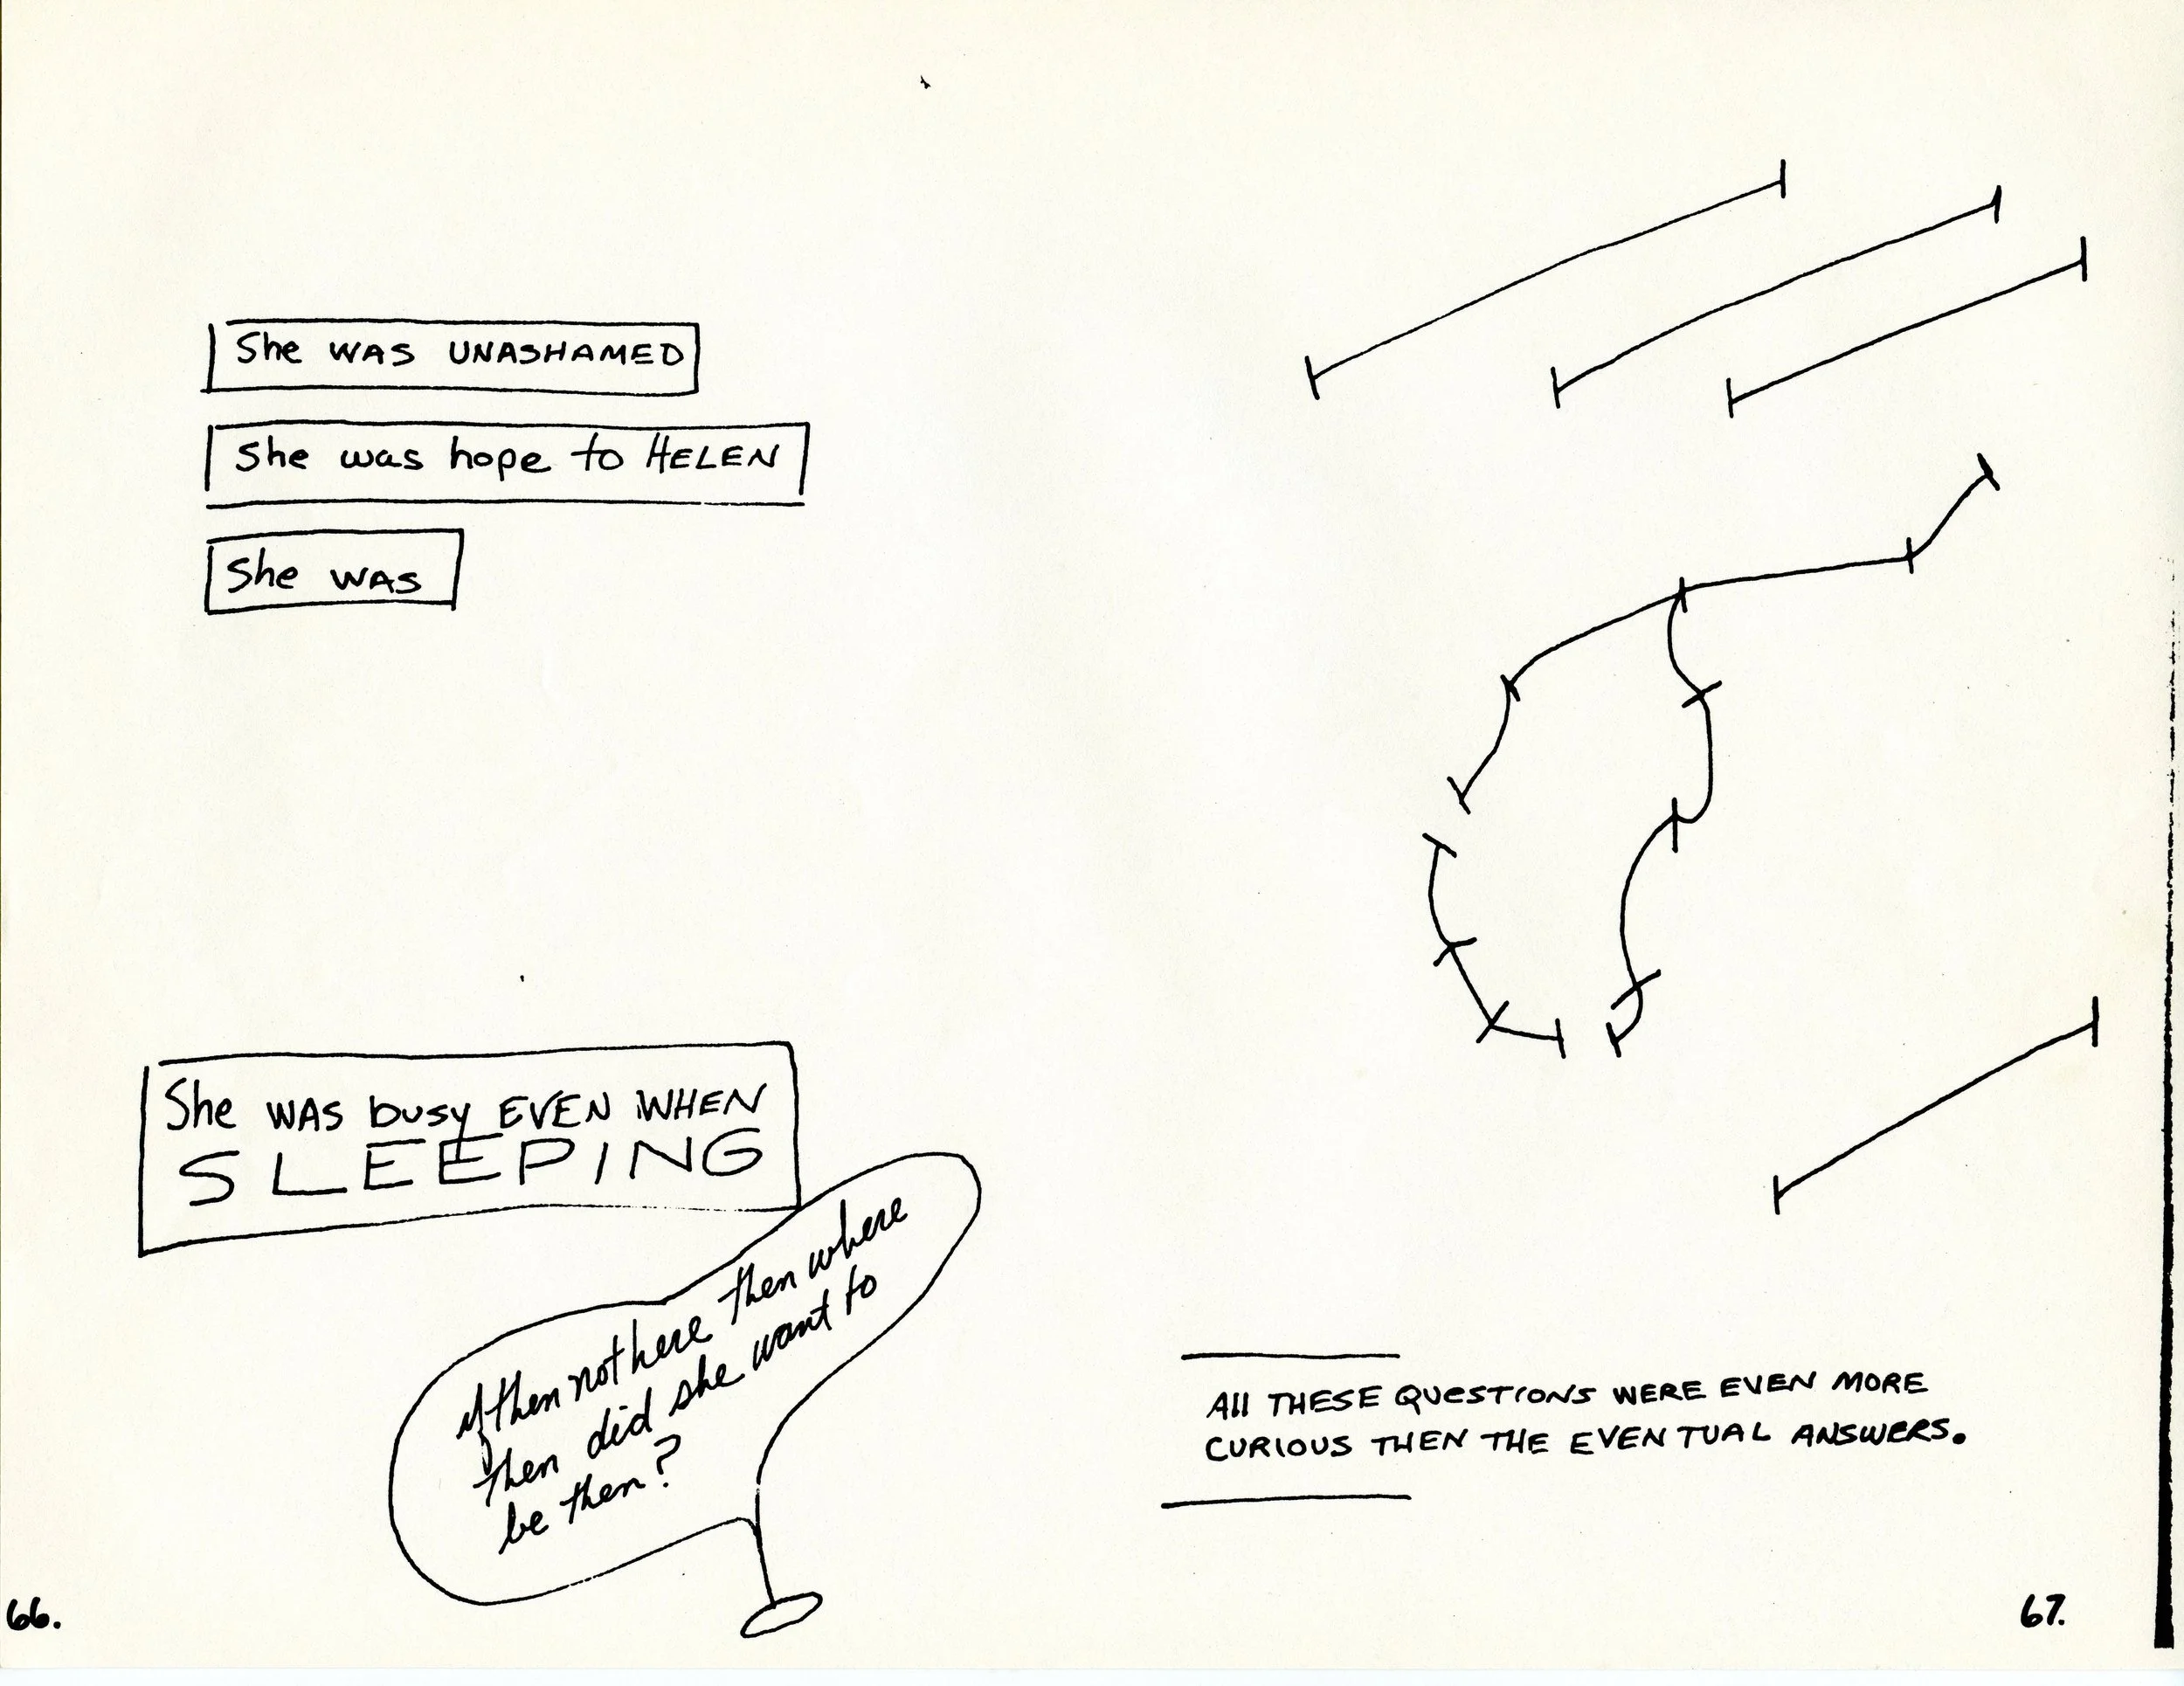 She WAS UNASHAMED
She was hope to HELEN
She WAS
She WAS busy EVEN WHEN
SLEEPING
if then not here then where
then did she want to
be then?
66.
All THESE QUESTIONS WERE EVEN MORE
CURIOUS THEN THE EVENTUAL ANSWERS.
67.